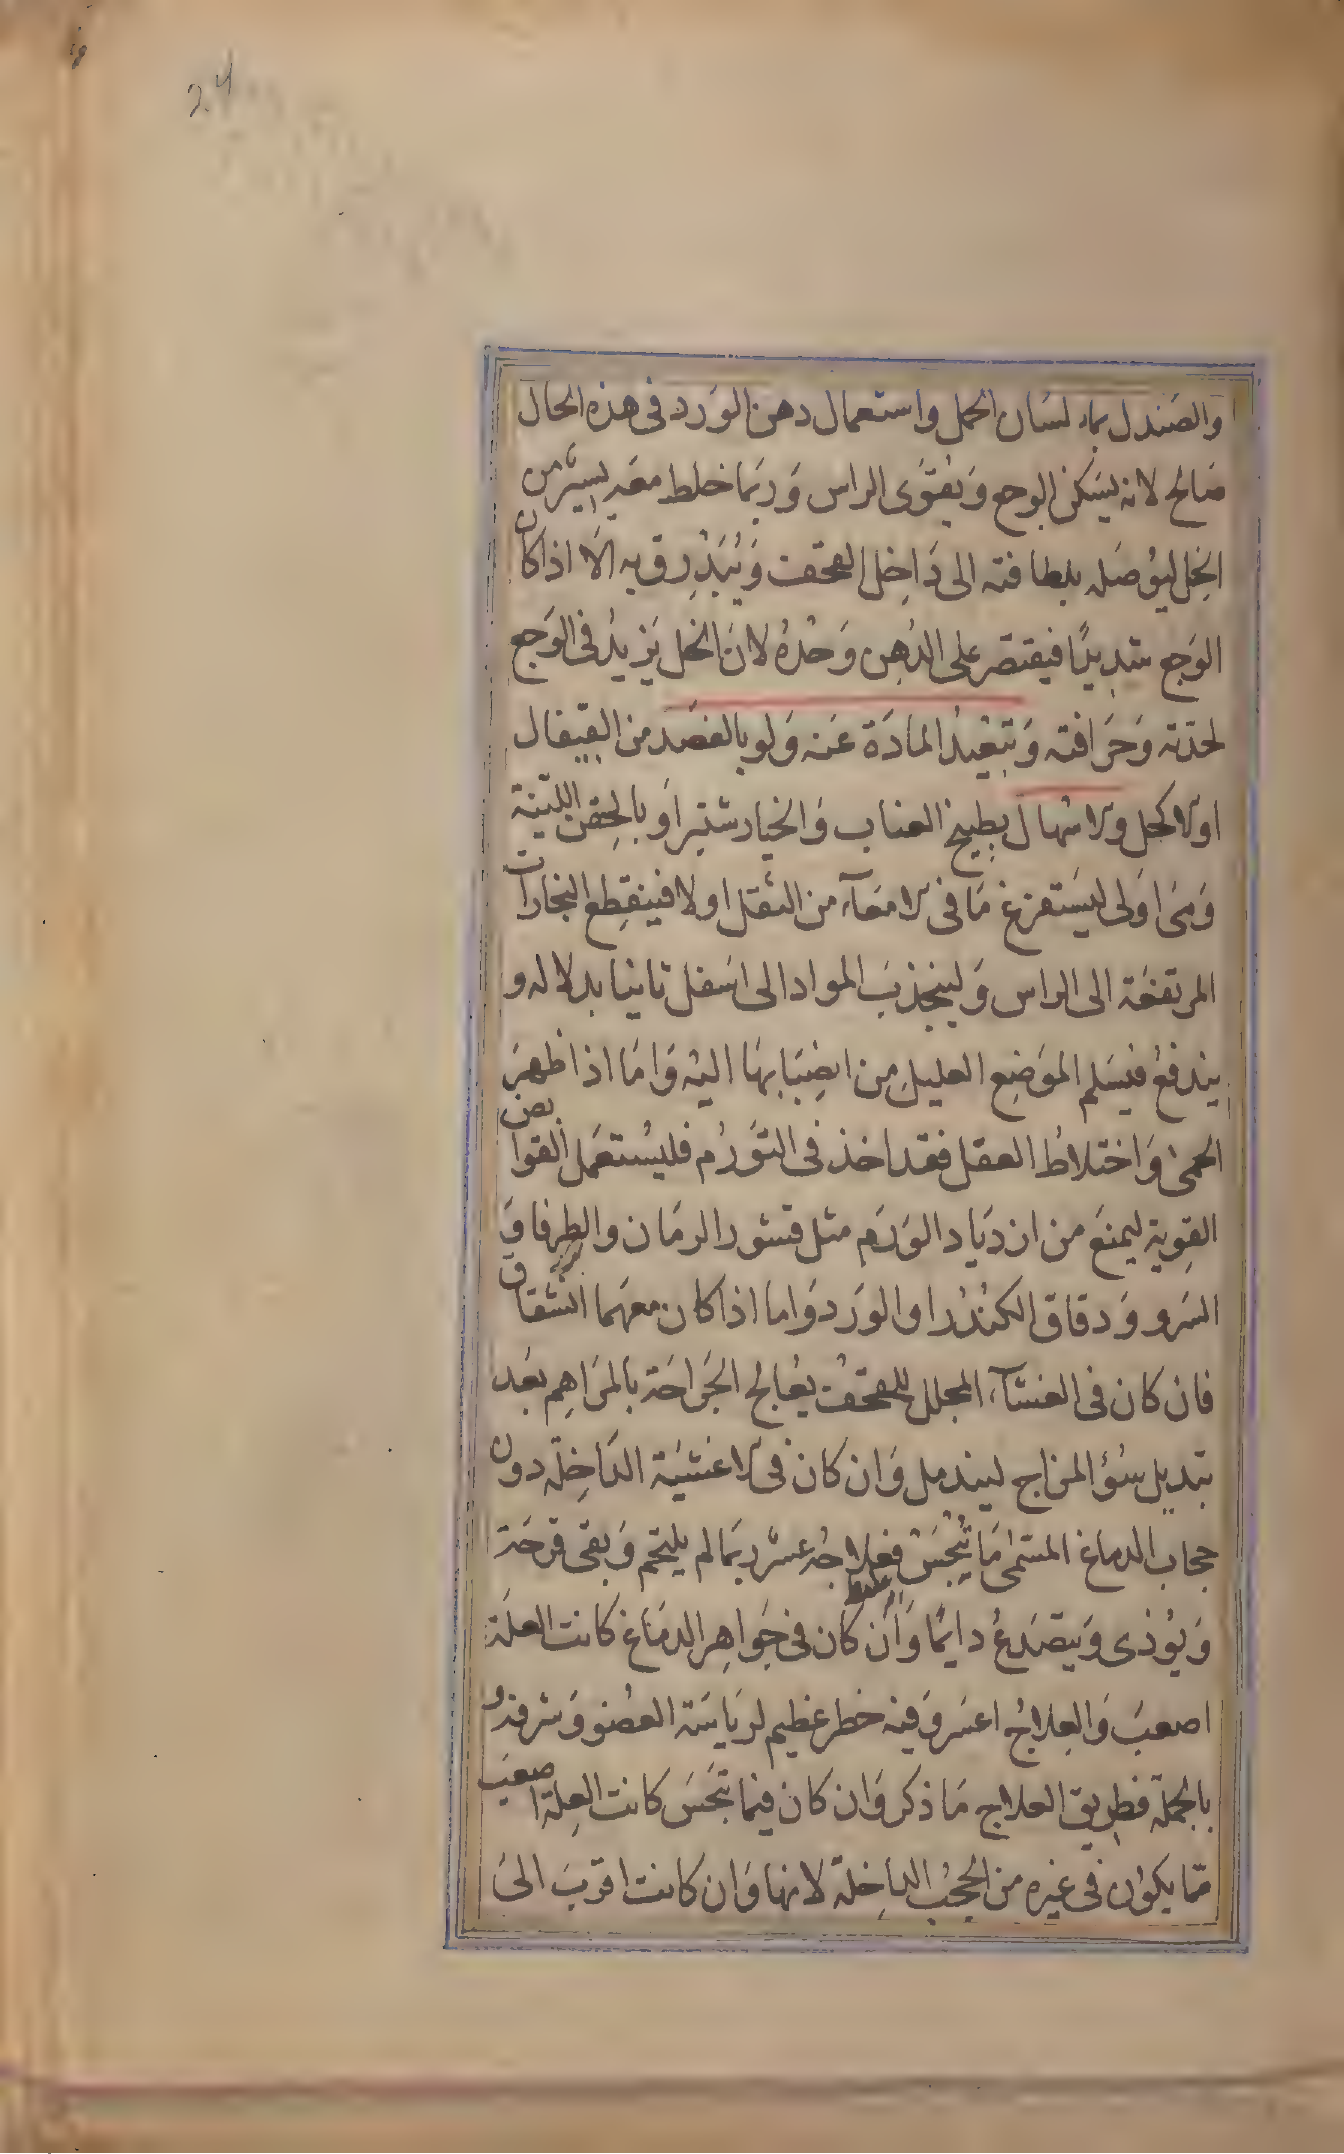 والصندل بماء لسان الحمل واستعمال دهن الورد فى هذه الحال
صَالح لانه يسَكن الوجع وَيقوّى الراس وَربما خلط معَه يسير من
الخِل ليوُصَله بلطافته الى دَاخِل القحف وَيُبَذرِق به الّا اذا كان
الوَجع شدِيدًا فيقتصر على الدُهن وَحْدهُ لانَ الخل يَزيدُ فى الوَجع
لحدّته وَحَرَافته وَتبعْيد المادَة عَنه وَلو بالفصَد من القيفال
اولاكحل ولاسْهال بطِبيخ العناب وَالخيار شنبر اوَ بالحِقن اللّينة
وَهى اوَلى ليسَتفرغ مَا فى لامعَآء من الثقل اولا فينقِطع البخارات
المرتفعَة الى الراس وَلينجذبَ المواد الى اسَفل ثانيا بدلاله و
يندفعُ فيسَلم الموَضِع العليلِ مِن انصِبَابهَا اليْه وَامَا اذا ظهرَ
الحمىٰ وَاختلاط العقل فقد اخذ فى التوَرُم فليسُتعمَل القوابض
القوِية ليمنعَ من ازديَاد الوَرَم مثل قشور الرمَان والطرفا وَ
السَرو وَدقاق الكنُدُر او الوَرد وَاما اذا كان معهما انشقاق
فان كان فى الغشآء المجلل للقحفْ يعُالج الجَراحَة بالمرَاهِم بعَد
تبديل سُؤ المزاج ليندمل وَان كان فى لاغشيَة الداخِلة دون
حجاب الدماغ المسَمّى مَا تُنجُسَ فعِلاجُه عسر ربمَا لم يلتحم وَبقى قرحَة
وَيُوذى وَيتصَدعُ دايمًا وَان كان فى جَواهِر الدمَاغ كانت العلَة
اصعبَ وَالعِلاجُ اعسَر وَفيه خطر عَظيم لريَاسَة العُضو وَشرفهُ
بالجمَلة فطرِيق العلاج مَا ذكر وَان كان فيما تنجَسَ كانت العِلة اصعبَ
مما يكون فى غيره من الحُجُب الداخِلة لانها وَان كانت اقربَ الىَ